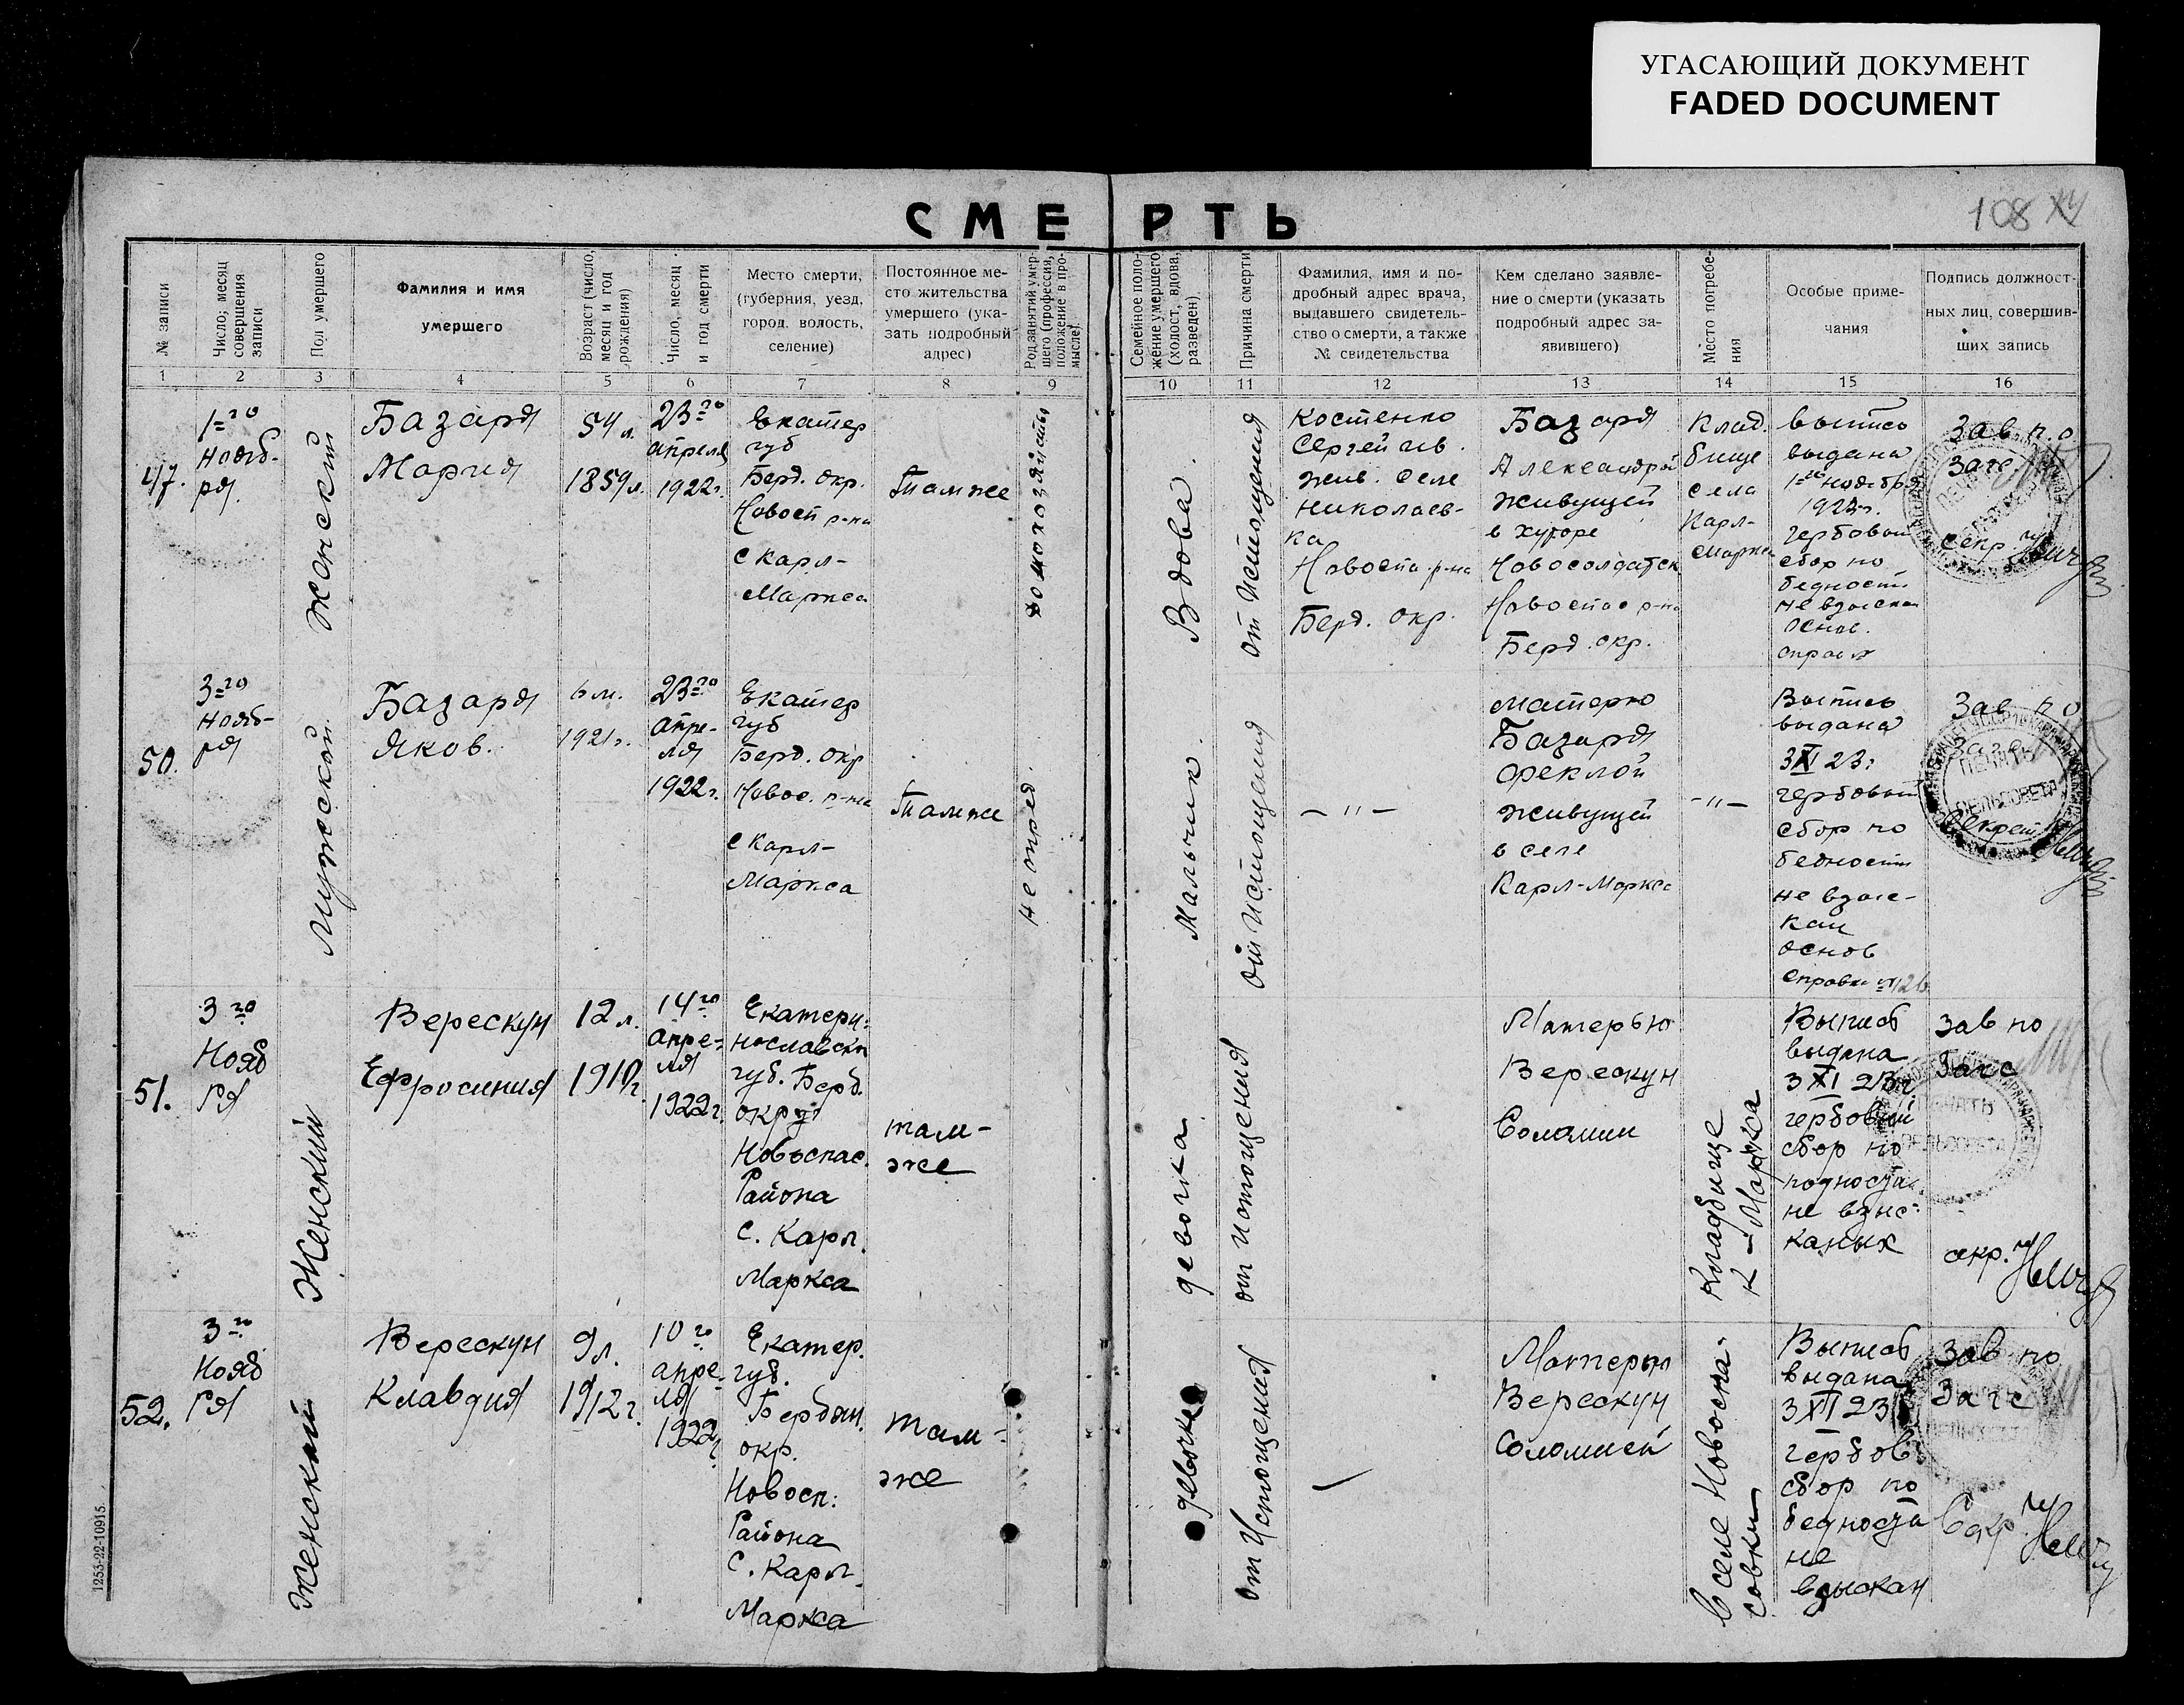 УГАСАЮЩИЙ ДОКУМЕНТ
FADED DOCUMENT
108
СМЕРТЬ
№ записи
Число, месяц
совершения
записи
Пол умершего
Фамилия и имя
умершего
Возраст (число,
месяц и год
рождения)
Число, месяц
и год смерти
Место смерти,
(губерния, уезд,
город, волость,
селение)
Постоянное ме-
сто жительства
умершего (ука-
зать подробный
адрес)
Род занятий умер-
шего (профессия,
положение в про-
мысле).
Семейное поло-
жение умершего
(холост, вдова,
разведен).
Причина смерти
Фамилия, имя и по-
дробный адрес врача,
выдавшего свидетель-
ство о смерти, а также
№ свидетельства
Кем сделано заявле-
ние о смерти (указать
подробный адрес за-
явившего)
Место погребе-
ния
Особые приме-
чания
Подпись должност-
ных лиц, совершив-
ших запись
1 2 3 4 5 6 7 8 9 10 11 12 13 14 15 16
1го
Нояб-
ря
Женский
Базара
Мария
54 л.
1859г.
23го
апреля
1922г.
Екатер
губ
Берд. окр.
Новосп р-на
с Карл-
Маркса
Там же
домохозяйство
Вдова.
от Истощения
Костенко
Сергей
жив. селе
Николаев-
ка
Новоспа р-на
Берд. окр.
Базара
Александрой
живущей
в хуторе
Новосолдатск
Новоспас р-на
Берд. окр.
Клад.
бище
села
Карл-
Маркса
выпись
выдана
1го ноября
1923г.
гербовый
сбор по
бедности
не взыскан
Основ.
Зав. п.о
Загс
секр
50.
3го
Нояб-
ря
Мужской
Базара
Яков.
6 м.
1921г.
23го
апре-
ля
1922г.
Екатер
губ
Берд. окр
Новос. р-на
с Карл-
Маркса
Там же
Мальчик.
от Истощения
— " —
Матерью
Базара
Феклой
живущей
в селе
Карл-Маркса
— " —
Выпись
выдана
3 XI 23г
гербовый
сбор по
бедности
не взыс-
кан
основ
Зав. п.о
Секрет
51.
3го
Нояб
ря
Женский
Верескун
Ефросиния
12 л.
1910г
14го
апре-
ля
1922г.
Екатери:
нославск
губ. Берд.
округ
Новоспас.
Района
С. Карл.
Маркса
там-
же
девочка
от истощения
Матерью
Верескун
Соломии
Кладбище
К-Маркса
Выписб
выдана
3 XI 23г
гербовый
сбор по
не взыс-
каных
Зав по
Загс
секр.
52.
3го
Нояб
ря
Женский
Верескун
Клавдия
9 л.
1912 г.
10го
апре-
ля
1922г
Екатер.
губ.
Бердян.
окр.
Новосп:
Района
С. Карл.
Маркса
там-
же
девочка
от Истощения
—
Матерью
Верескун
Соломией
В селе Новоспа-
совки
Выписб
выдана
3 XI 23
гербов
сбор по
бедности
не
взыскан
Зав по
Загс
Секр
1253-22-10915.